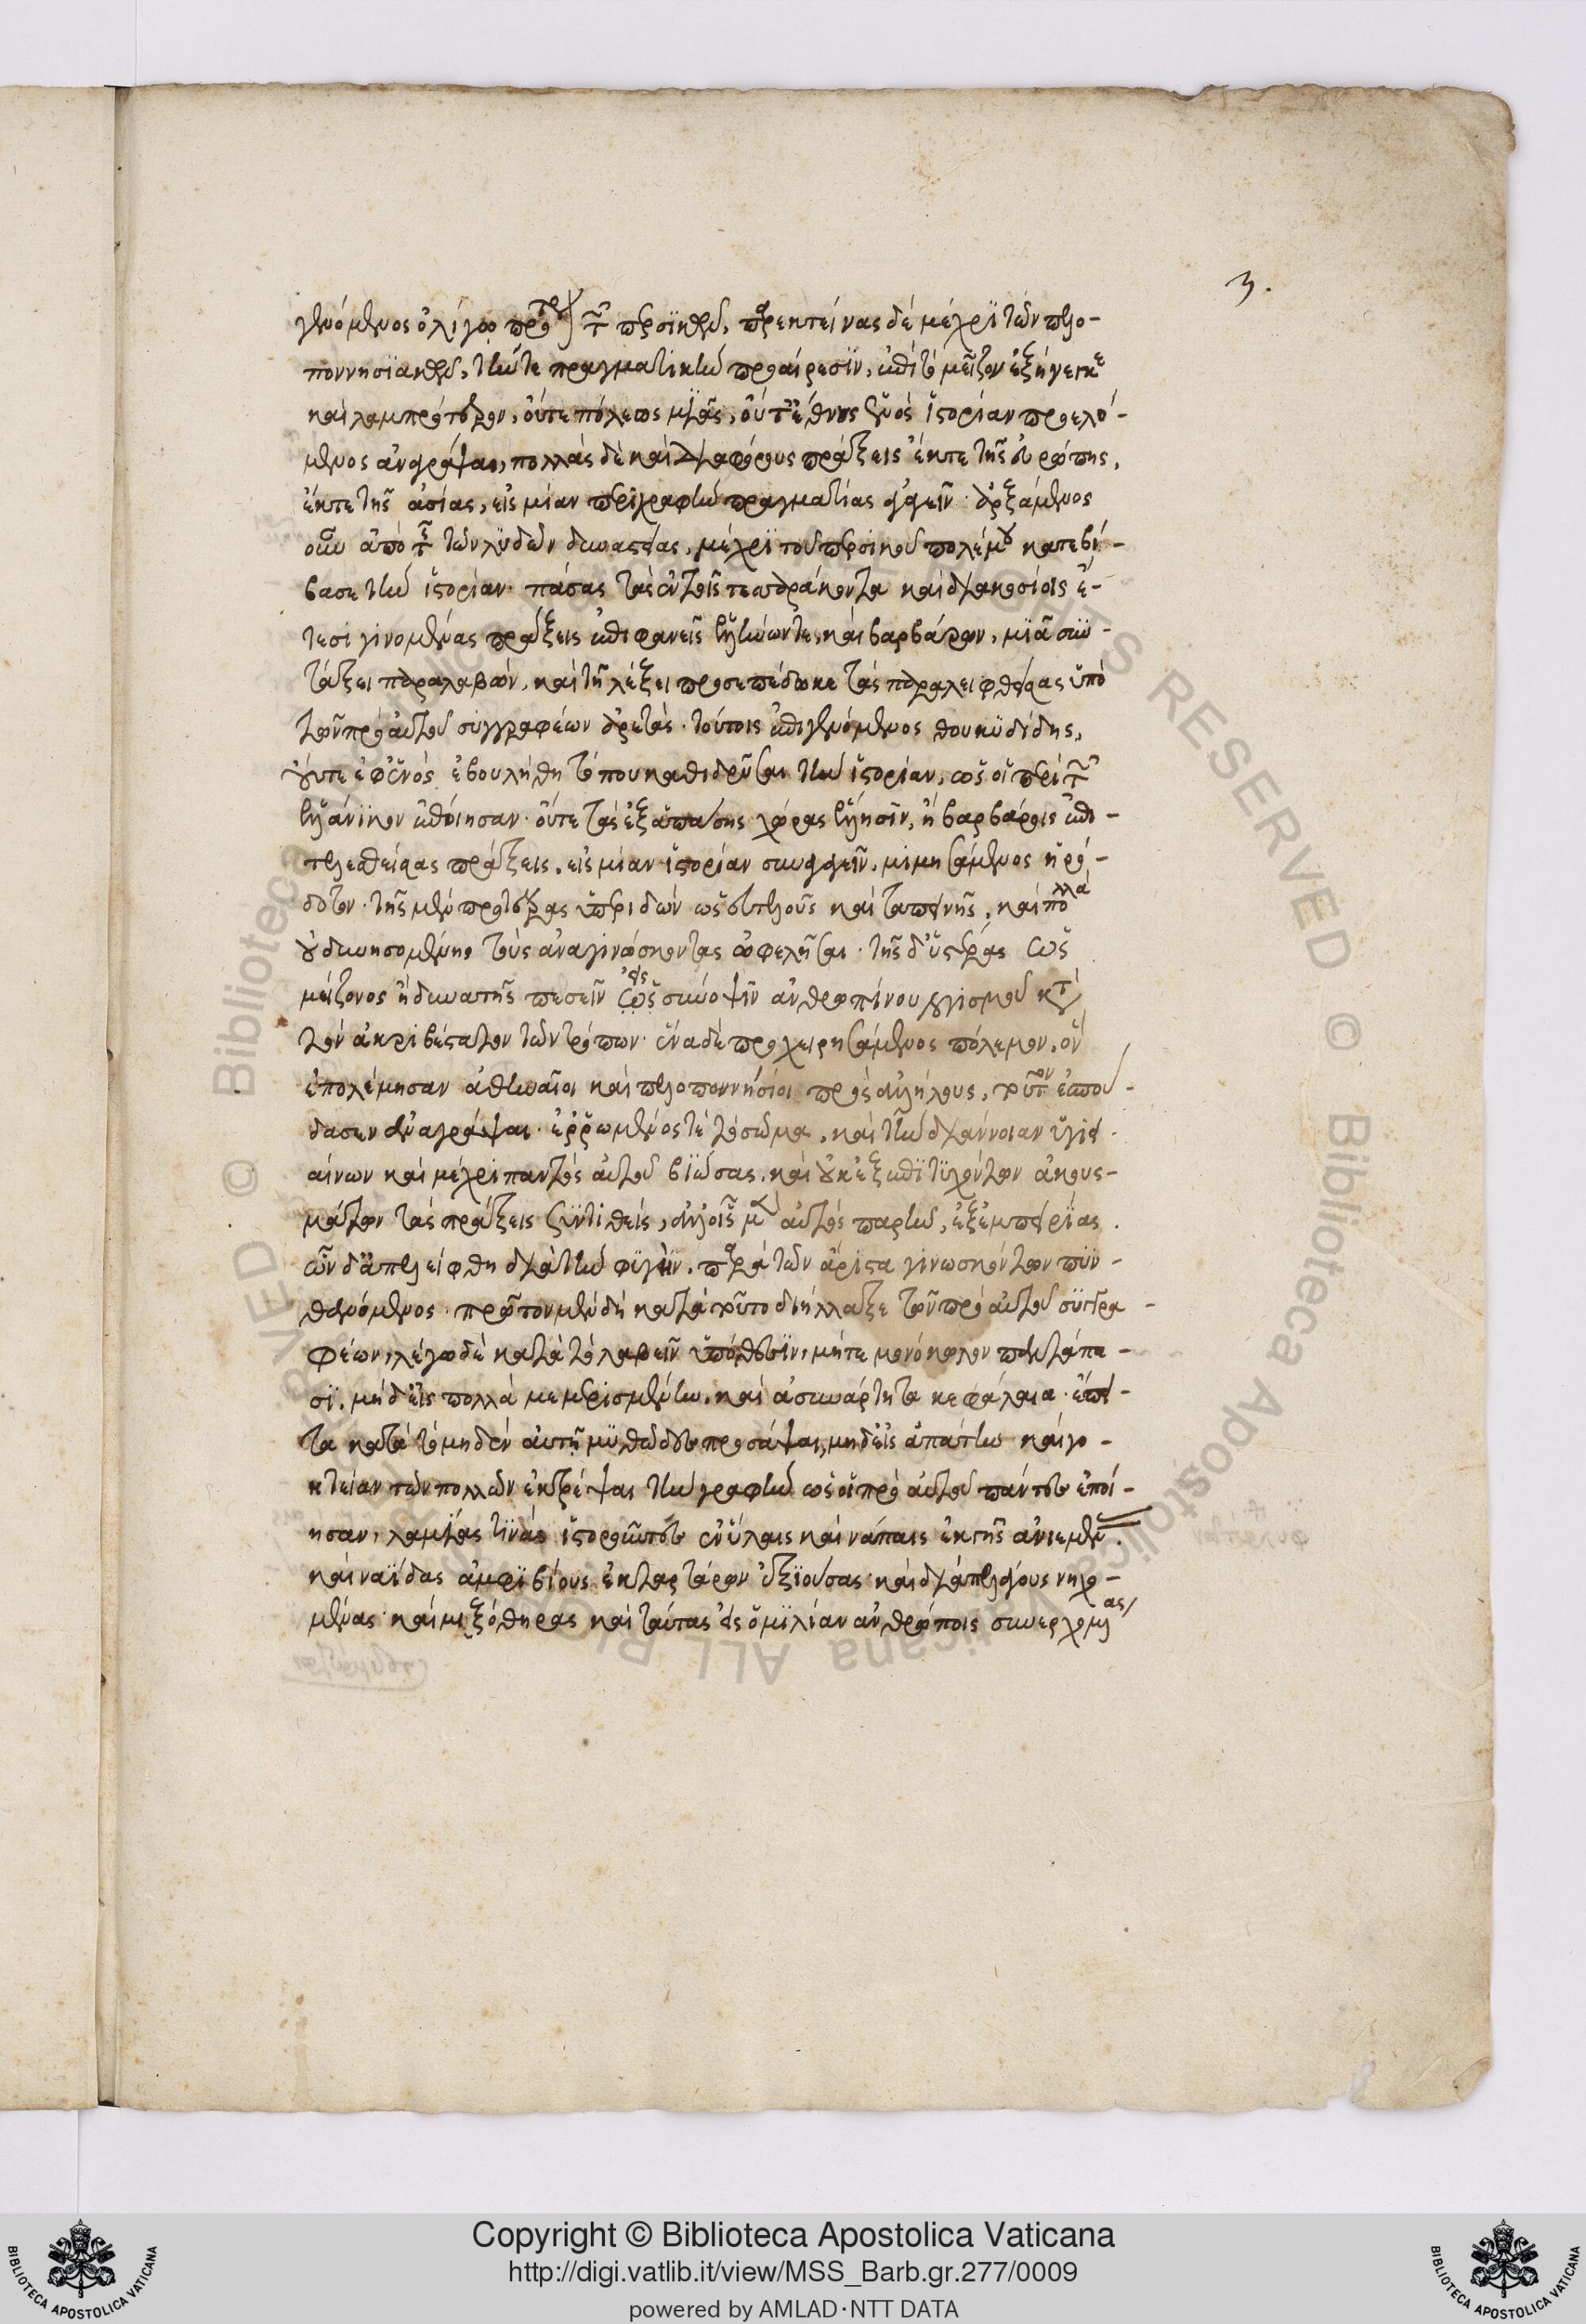 3.
γενόμενος ὀλίγω πρότερον τῶν περσϊκῶν, παρεκτείνας δὲ μέχρϊ τῶν πελο-
ποννησϊακῶν, τήν τε πραγματικὴν προαίρεσϊν, ἐπὶ τὸ μεῖζον ἐξήνεγκε
καὶ λαμπρότερον, οὔτε πόλεως μϊᾶς, οὔτ' ἔθνους ἑνὸς ἱστορίαν προελό-
μενος ἀναγράψαι, πολλὰς δὲ καὶ διαφόρους πράξεις ἔκ τε τῆς εὐρώπης,
ἔκ τε τῆς ἀσίας, εἰς μίαν περιγραφὴν πραγματίας ἀγαγεῖν· ἀρξάμενος
οὖν ἀπὸ τῆς τῶν λυδῶν δυναστείας, μέχρϊ τοῦ περσικοῦ πολέμου κατεβί-
βασε τὴν ἱστορίαν· πάσας τὰς ἐν τοῖς τεσσαράκοντα καὶ διακοσίοις ἔ-
τεσι γινομένας πράξεις ἐπιφανεῖς ἑλλήνων τε καὶ βαρβάρων, μϊᾶ συν-
τάξει παραλαβών, καὶ τῆ λέξει προσεπέδωκε τὰς παραλειφθείσας ὑπὸ
τῶν πρὸ αὐτοῦ συγγραφέων ἀρετάς· τούτοις ἐπιγενόμενος θουκϋδίδης,
οὔτε ἐφ' ἑνὸς ἐβουλήθη τόπου καθιδρῦσαι τὴν ἱστορίαν, ὡς οἱ περὶ τὸν
ἑλλάνϊκον ἐποίησαν· οὔτε τὰς ἐξ ἁπάσης χώρας ἕλλησϊν, ἢ βαρβάροις ἐπι-
τελεσθείσας πράξεις, εἰς μίαν ἱστορίαν συναγαγεῖν, μιμησάμενος ἡρό-
δοτον· τῆς μὲν προτέρας ὑπεριδὼν ὡς εὐτελοῦς καὶ ταπεινῆς, καὶ πολλὰ
οὐ δυνησομένης τοὺς ἀναγινώσκοντας ὠφελῆσαι· τῆς δ' ὑστέρας ὡς
μείζονος ἢ δυνατῆς πεσεῖν εἰς σύνοψϊν ἀνθρωπίνου λογισμοῦ κατὰ
τὸν ἀκριβέστατον τῶν τρόπων· ἕνα δὲ προχειρησάμενος πόλεμον, ὃν
ἐπολέμησαν ἀθηναῖοι καὶ πελοποννήσιοι πρὸς ἀλλήλους, τοῦτον ἐσπού-
δασεν ἀναγράψαι· ἐρρωμένος τὲ τὸ σῶμα, καὶ τὴν διάνοιαν ὑγι-
αίνων καὶ μέχρι παντὸς αὐτοῦ βϊώσας, καὶ οὐκ ἐξ ἐπϊτϋχόντων ἀκουσ-
μάτων τὰς πράξεις συντιθεὶς, ἀλλ' οἷς μὲν αὐτὸς παρῆν, ἐξ ἐμπειρίας
ὧν δ' ἀπελείφθη διὰ τὴν φϋγὴν, παρὰ τῶν ἄριστα γινωσκόντων πϋν-
θανόμενος· πρῶτον μὲν δὴ κατὰ τοῦτο διήλλαξε τῶν πρὸ αὐτοῦ συγγρα-
φέων, λέγω δὲ κατὰ τὸ λαβεῖν ὑπόθεσϊν, μήτε μονόκωλον παντάπα-
σϊ, μηδ' εἰς πολλὰ μεμερισμένην, καὶ ἀσυνάρτητα κεφάλαια· ἔπει-
τα κατὰ τὸ μηδὲν αὐτῆ μϋθῶδες προσάψαι, μηδ' εἰς ἀπάτην καὶ γο-
ητείαν τῶν πολλῶν ἐκτρέψαι τὴν γραφὴν ὡς οἱ πρὸ αὐτοῦ πάντες ἐποί-
ησαν, λαμίας τϊνὰς ἱστοροῦντες ἐν ὕλαις καὶ νάπαις ἐκ γῆς ἀνιεμέν
καὶ ναΐδας ἀμφϊβίους ἐκ ταρτάρων ἐξϊούσας· καὶ διὰ πελάγους νηχο-
μένας· καὶ μιξόθηρας καὶ ταύτας εἰς ὁμϊλίαν ἀνθρώποις συνερχομένας
Copyright © Biblioteca Apostolica Vaticana
http://digi.vatlib.it/view/MSS_Barb.gr.277/0009
powered by AMLAD·NTT DATA